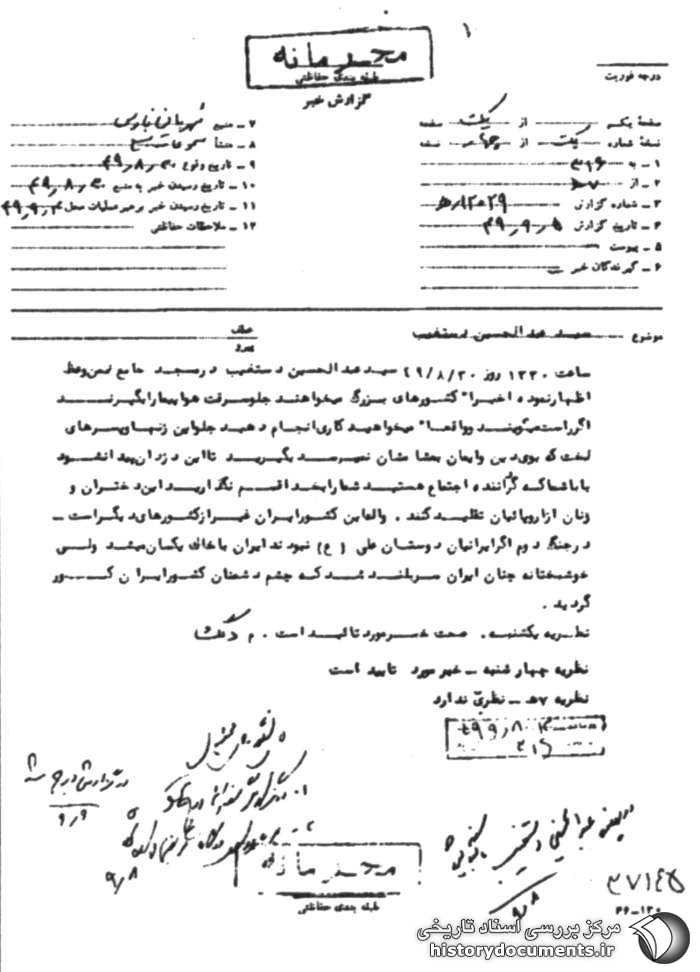 ۱
محرمانه
طبقه بندی حفاظتی
درجه فوریت
گزارش خبر
صفحه یکم از یک صفحه
نسخه شماره یک از چهار نسخه
۱ ـ به ۳۴۶
۲ ـ از ۷ه
۳ ـ شماره گزارش ۱۲۰۲۹/ه
۴ ـ تاریخ گزارش ۴۹٫۹٫۵
۵ ـ پیوست
۶ ـ گیرندگان خبر
۷ ـ منبع شهربانی فارس
۸ ـ منشأ
۹ ـ تاریخ وقوع ۴۹٫۸٫۳۰
۱۰ ـ تاریخ رسیدن خبر به منبع ۴۹٫۸٫۳۰
۱۱ ـ تاریخ رسیدن خبر برهبر عملیات محل ۴۹٫۹٫۴
۱۲ ـ ملاحظات حفاظتی
موضوع سید عبدالحسین دستغیب
عطف
پیرو
ساعت ۱۲۳۰ روز ۴۹/۸/۳۰ سید عبدالحسین دستغیب در مسجد جامع ضمن وعظ
اظهار نموده اخیرا" کشورهای بزرگ میخواهند جلو سرقت هواپیما را بگیرند
اگر راست میگویند و واقعا" میخواهید کاری انجام دهید جلو این زنها و پسرهای
لخت که بوی دین و ایمان بمشامشان نمیرسد بگیرید تا این دزدان پیدا نشود
بابا شما که گراننده اجتماع هستید شما را بخدا قسم نگذارید این دختران و
زنان از اروپائیان تقلید کنند . والله این کشور ایران غیر از کشورهای دیگر است ـ
در جنگ دوم اگر ایرانیان دوستان علی (ع) نبودند ایران با خاک یکسان میشد ولی
خوشبختانه چنان ایران سربلند شد که چشم دشمنان کشور ایران کور
گردید .
نظریه یکشنبه . صحت خبر مورد تائید است . م
نظریه چهارشنبه ـ خبر مورد تایید است
نظریه ۷ه ـ نظری ندارد
در پرونده عبدالحسین دستغیب بایگانی شود
۹٫۸
محرمانه
طبقه بندی حفاظتی
۳۷۱۴۵
۴۶-۱۳۰
مرکز بررسی اسناد تاریخی
historydocuments.ir